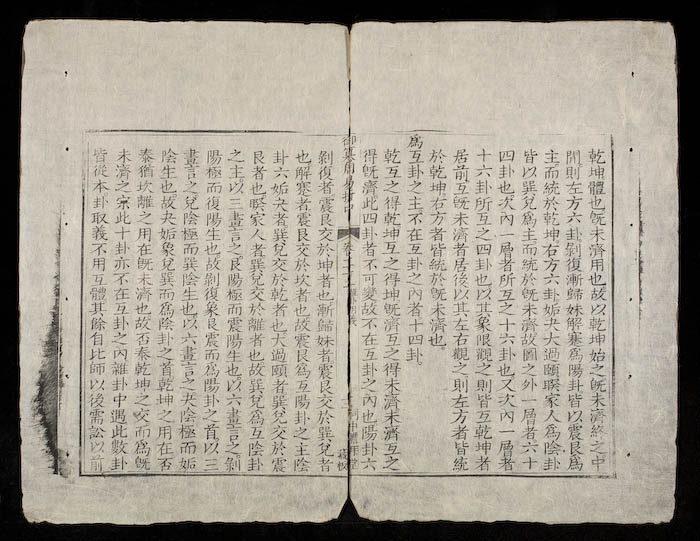 乾坤體也旣未濟用也故以乾坤始之旣未濟終之中
間則左方六卦剝復漸歸妹解蹇爲陽卦皆以震艮爲
主而統於乾坤右方六卦姤夬大過頤睽家人爲陰卦
皆以巽兌爲主而統於旣未濟故圖之外一層者六十
四卦也次內一層者所互之十六卦也又次內一層者
十六卦所互之四卦也以其象限觀之則皆互乾坤者
居前互旣未濟者居後以其左右觀之則左方者皆統
於乾坤右方者皆統於旣未濟也
爲互卦之主不在互卦之內者十四卦
乾互之得乾坤互之得坤旣濟互之得未濟未濟互之
得旣濟此四卦者不可變故不在互卦之內也陽卦六
御纂周易折中
卷二十
剝復者震艮交於坤者也漸歸妹者震艮交於巽兌者
也解蹇者震艮交於坎者也故震艮爲互卦之主陰
卦六姤夬者巽兌交於乾者也大過頤者巽兌交於震
艮者也睽家人者巽兌交於離者也故巽兌爲互陰卦
之主以三畫言之艮陽極而震陽生也以六畫言之剝
陽極而復陽生也故剝復象艮震而爲陽卦之首以三
畫言之兌陰極而巽陰生也以六畫言之夬陰極而姤
陰生也故夬姤象兌巽而爲陰卦之首乾坤之用在否
泰猶坎離之用在旣未濟也故否泰乾坤之交而爲旣
未濟之宗此十卦亦不在互卦之內雜卦中遇此數卦
皆從本卦取義不用互體其餘自比師以後需訟以前